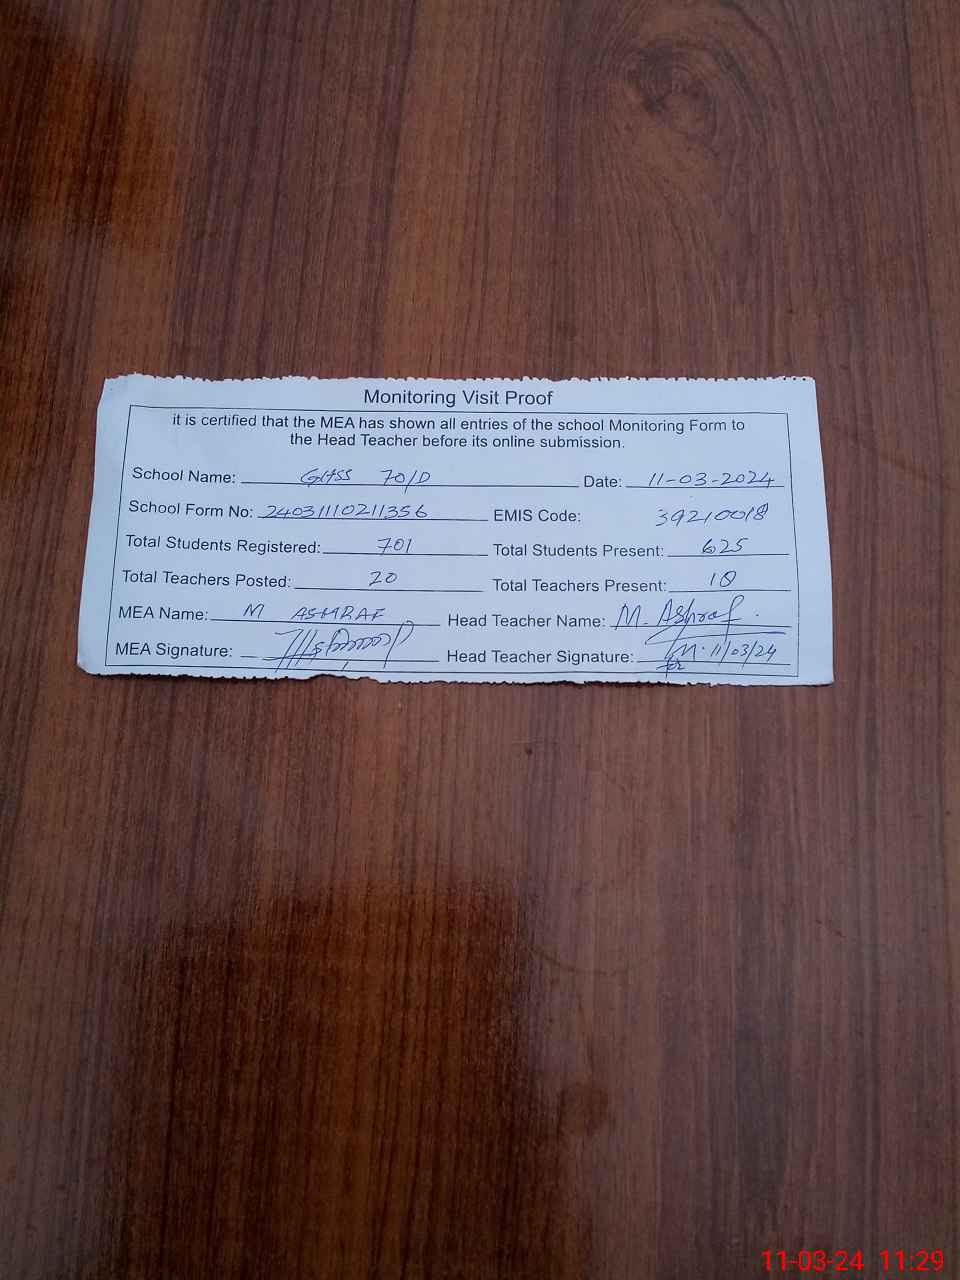 Monitoring Visit Proof
it is certified that the MEA has shown all entries of the school Monitoring Form to
the Head Teacher before its online submission.
School Name: GHSS 70/D Date: 11-03-2024
School Form No: 24031110211356 EMIS Code: 39210018
Total Students Registered: 701 Total Students Present: 625
Total Teachers Posted: 20 Total Teachers Present: 18
MEA Name: M ASHRAF Head Teacher Name: M. Ashraf.
MEA Signature: Head Teacher Signature: 11/03/24
for
11-03-24 11:29